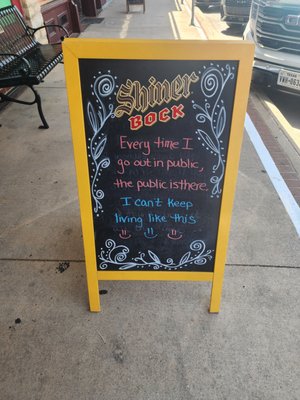 Shiner
BOCK
Every time I
go out in public,
the public is there.
I can't keep
living like this